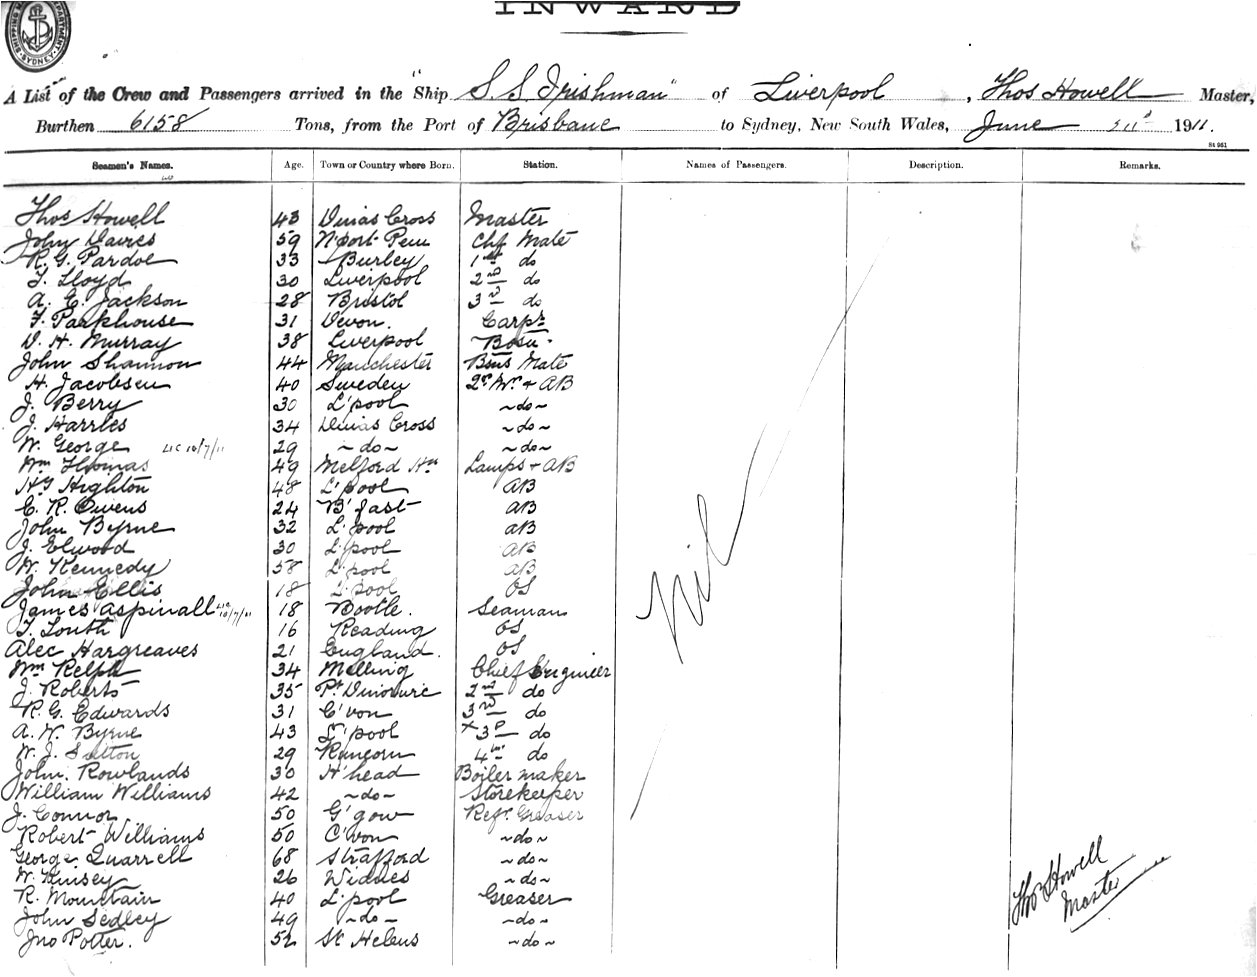 SHIPPING MASTER'S DEPARTMENT. SYDNEY.
INWARD
A List of the Crew and Passengers arrived in the Ship "S.S. Irishman" of Liverpool, Thos Howell Master,
Burthen 6158 Tons, from the Port of Brisbane to Sydney, New South Wales, June 1911.
St 961
Seamen's Names. Age. Town or Country where Born. Station. Names of Passengers. Description. Remarks.
Thos Howell 43 Dinas Cross Master
John Davies 59 N'port Pem Chf Mate
R. G. Pardoe 33 Burley 1st do
T. Lloyd 30 Liverpool 2nd do
A. E. Jackson 28 Bristol 3rd do
F. Parkhouse 31 Devon. Carpr
D. H. Murray 38 Liverpool Bosn.
John Shannon 44 Manchester Bsns Mate
H. Jacobsen 40 Sweden 2r Mr + AB
J. Berry 30 L'pool ~do~
J. Harries 34 Dinas Cross ~do~
W. George LIC 10/7/11 29 ~do~ ~do~
Wm Thomas 49 Melford Hn Lamps + AB
Hy Highton 48 L'pool AB
E. R. Owens 24 B'fast AB
John Byrne 32 L'pool AB
J. Elwood 30 L'pool AB
W. Kennedy 58 L'pool AB
John Ellis 18 L'pool OS
James Aspinall LIC 10/7/11 18 Bootle. Seaman
T. South 16 Reading OS
Alec Hargreaves 21 England. OS
Wm Relph 34 Melling Chief Enginier
J. Roberts 35 Pt Dinorwic 2nd do
R. G. Edwards 31 C'von 3rd do
A. W. Byrne 43 L'pool x 3d do
W. J. Sutton 29 Runcorn 4th do
John. Rowlands 30 H'head Boiler maker
William Williams 42 ~do~ Storekeeper
J. Connor 50 G'gow Refr. Greaser
Robert Williams 50 C'von ~do~
George. Quarrell 68 Strafford ~do~
W. Kinsey 26 Widnes ~do~
R. Mountain 40 L'pool Greaser
John Sedley 49 ~do~ ~do~
Jno Potter. 52 St Helens ~do~
Nil
Thos Howell
Master